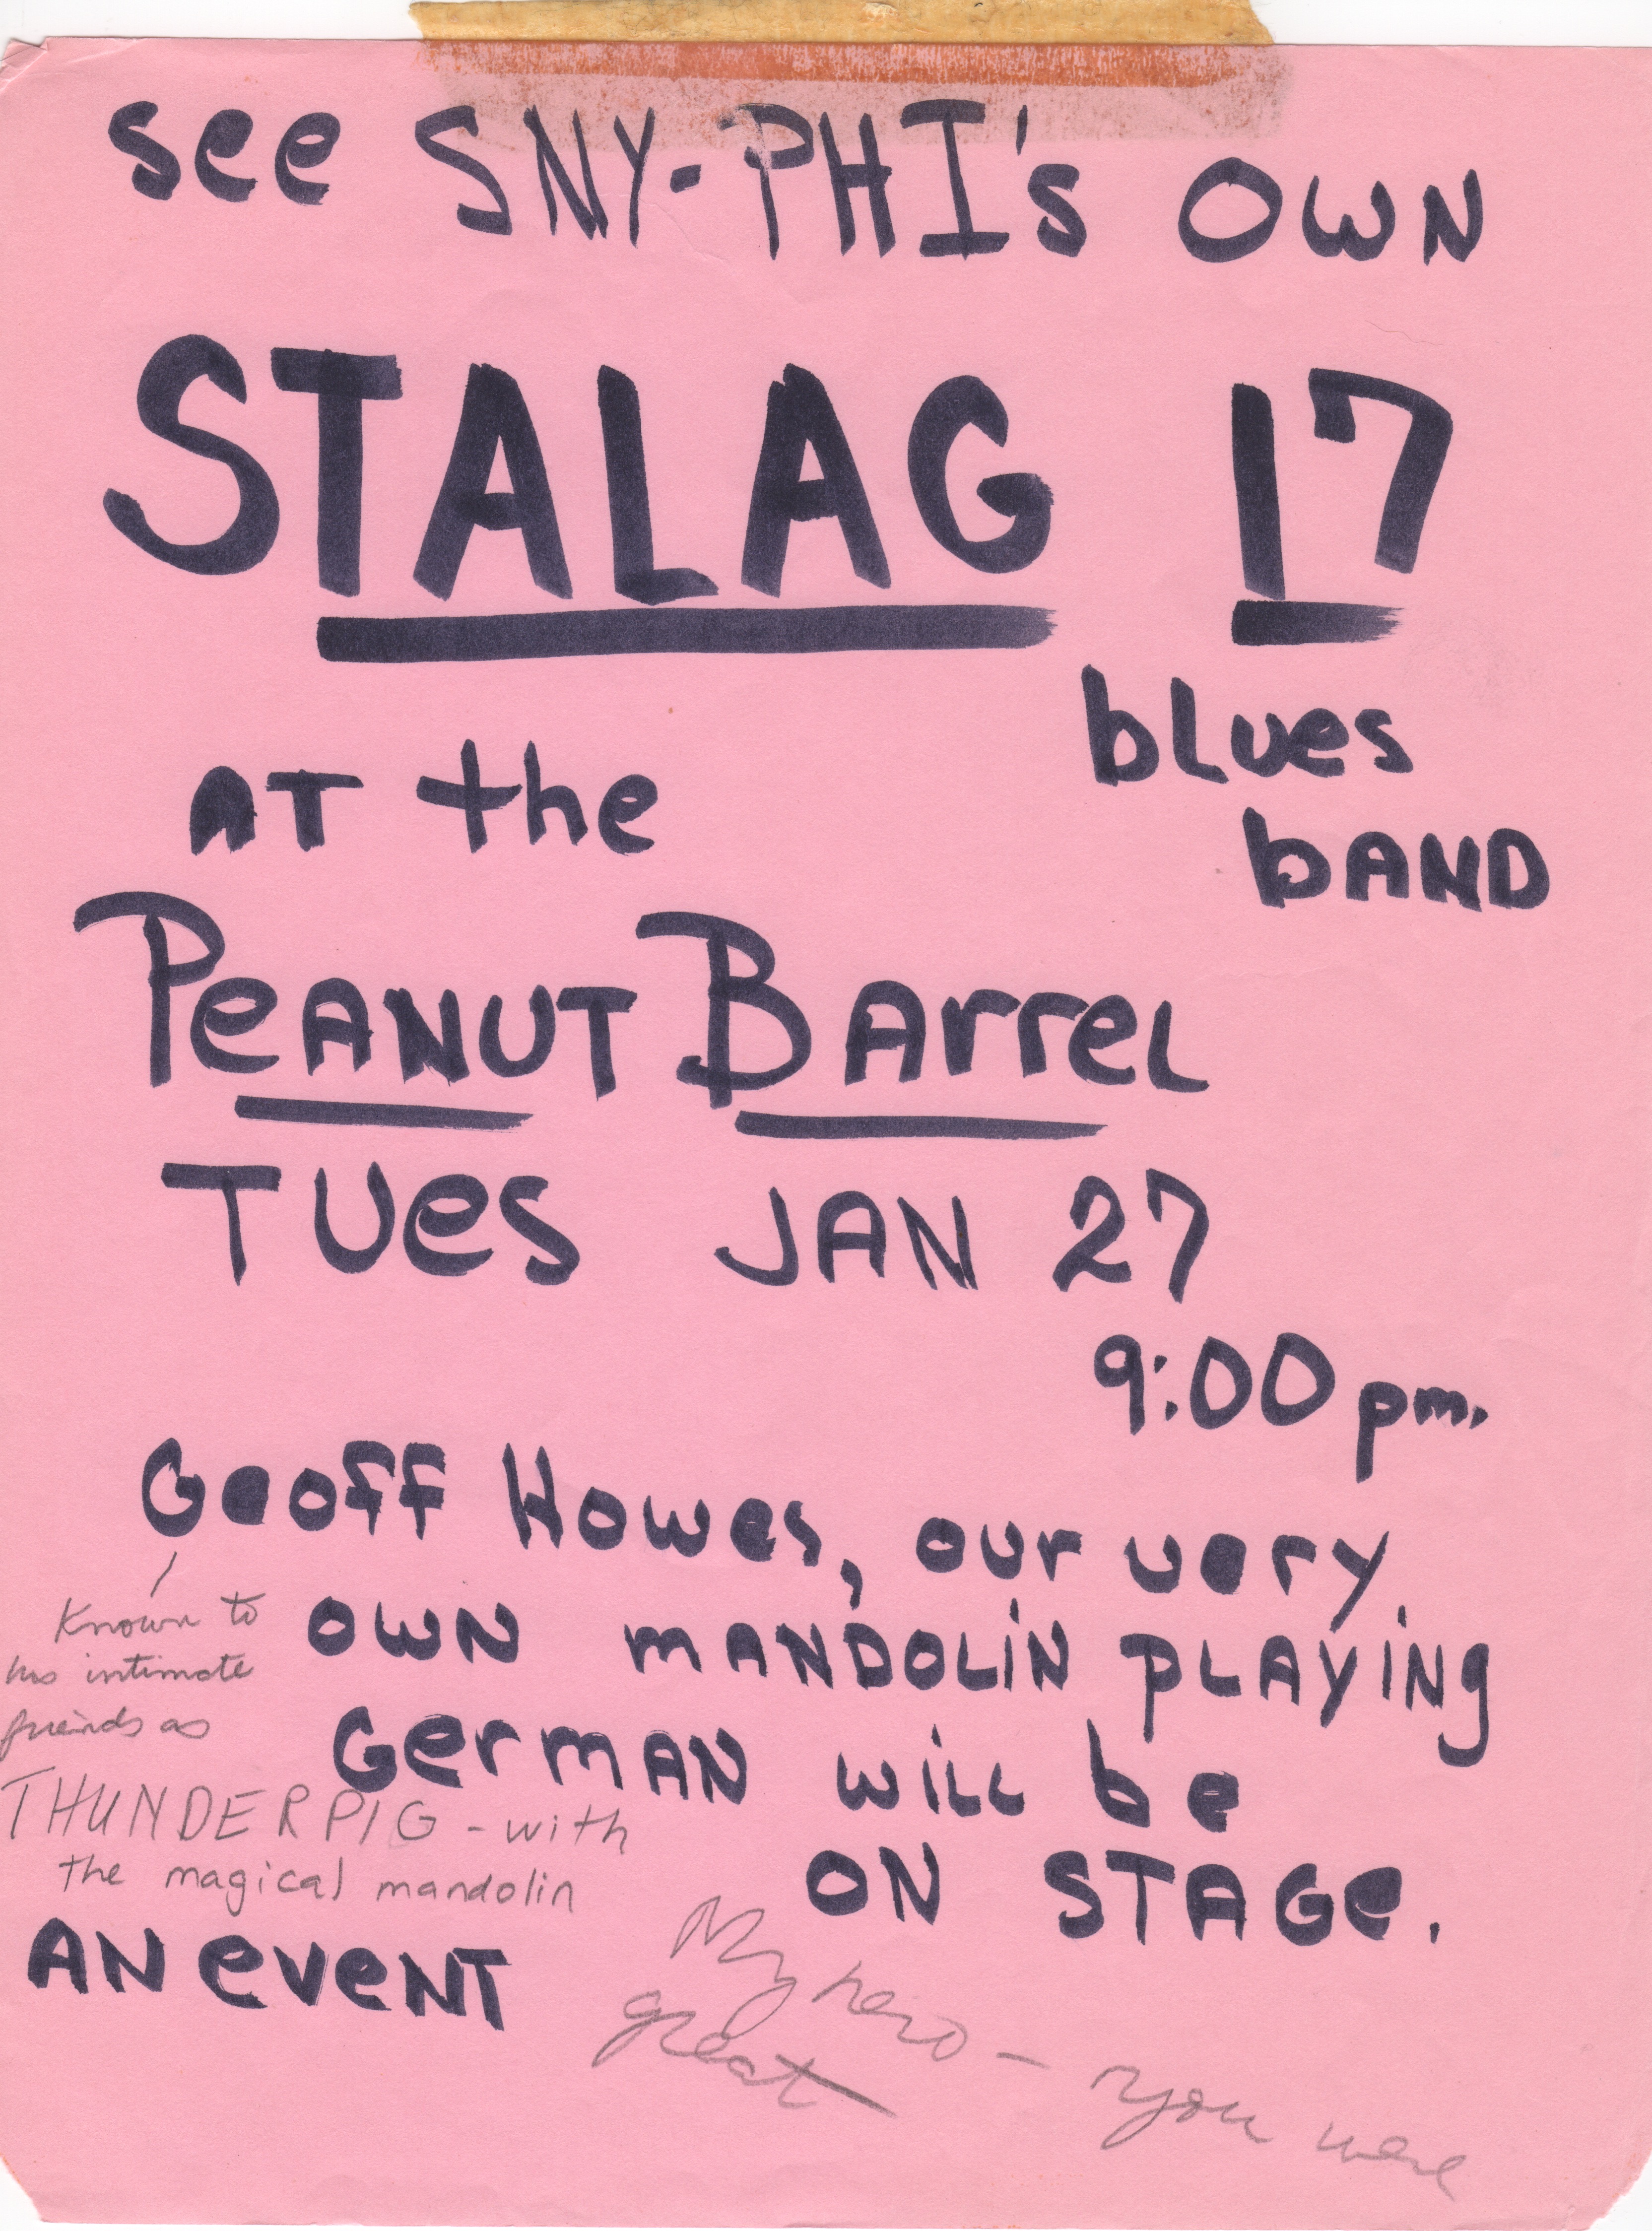 see SNY-PHI's OWN
STALAG 17
blues
bAND
AT the
PeANUT BArreL
TUes JAN 27
9:00 pm.
Geoff Howes, our very
OWN mANDOLiN pLAYiNg
GermAN wiLL be
ON STAGe.
AN eveNT
Known to
his intimate
friends as
THUNDERPIG - with
the magical mandolin
My hero - you were
great